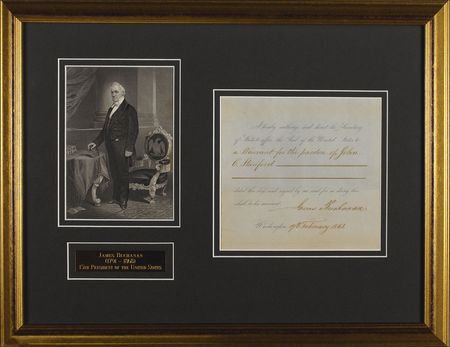 James Buchanan
(1791 - 1868)
15th President of the United States
I hereby authorize and direct the Secretary
of State to affix the Seal of the United States to
a Warrant for the pardon of John
C. Stanford
dated this day and signed by me and for so doing this
shall be his warrant.
James Buchanan
Washington 19 February